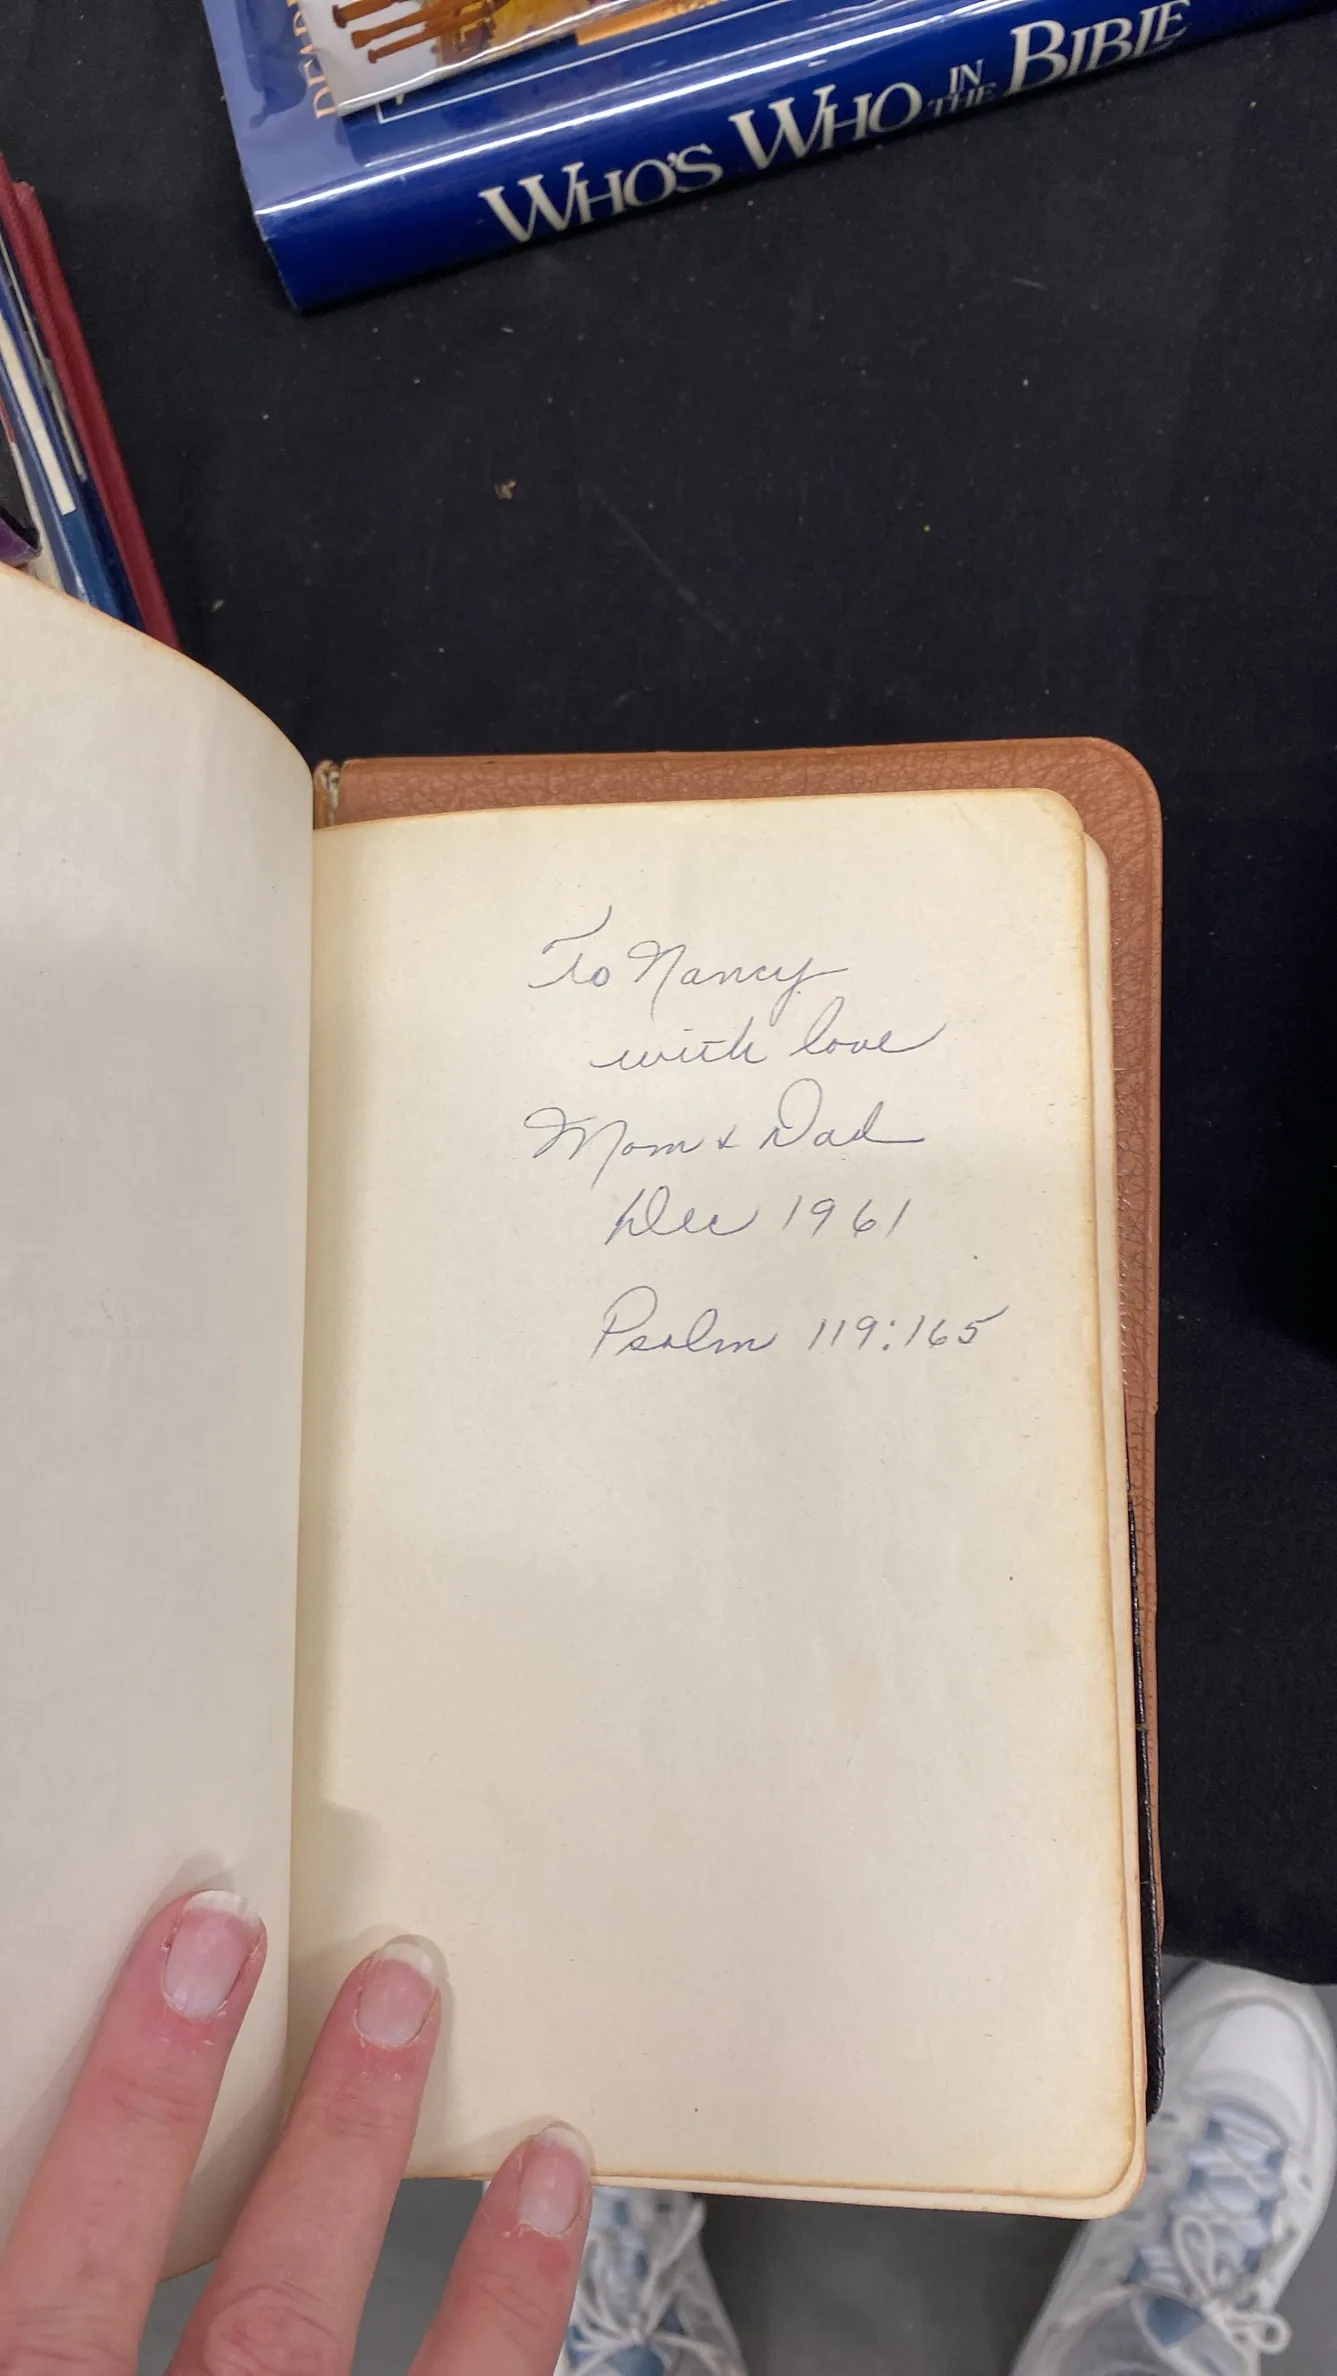 WHO'S WHO IN THE BIBLE
To Nancy
with love
Mom & Dad
Dec 1961
Psalm 119:165